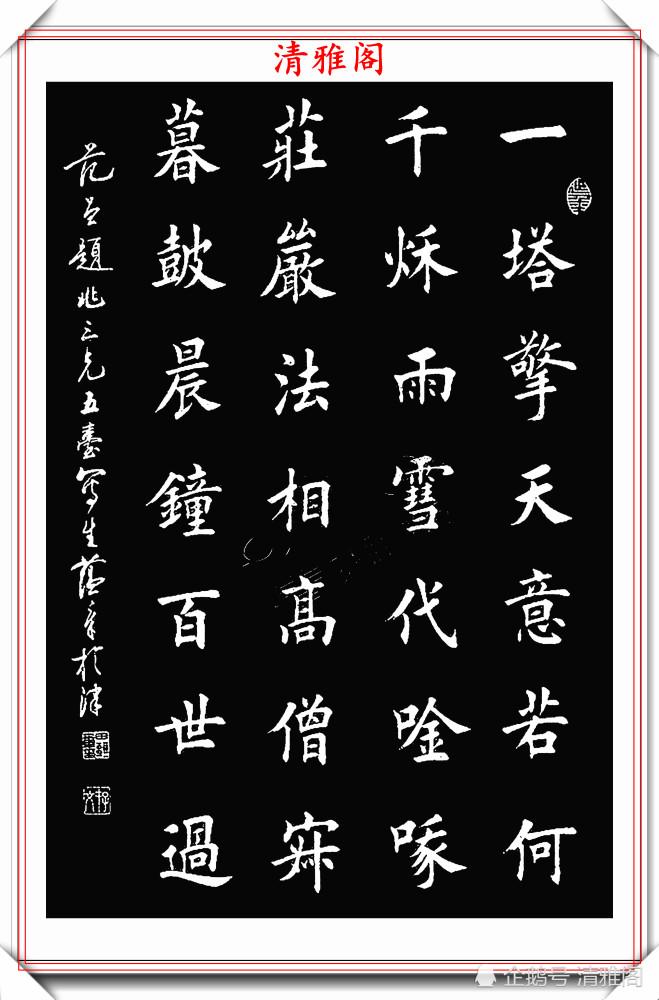 清雅阁
一塔擎天意若何
千秌雨雪代唫哦
莊嚴法相高僧寂
暮鼓晨鐘百世過
范曾題兆三兄五臺寫生蘊章於津
企鹅号 清雅阁